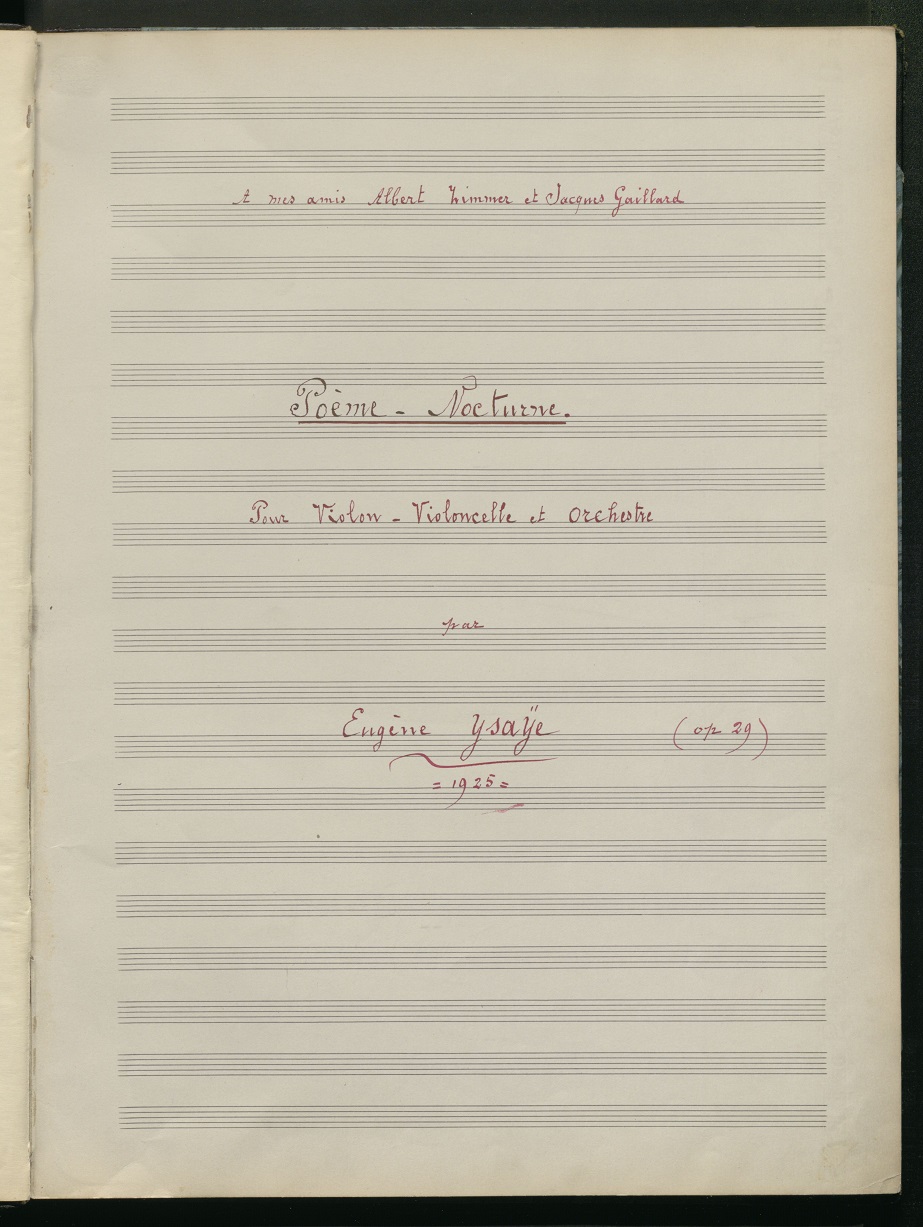 A mes amis Albert Zimmer et Jacques Gaillard
Poème - Nocturne.
Pour Violon - Violoncelle et Orchestre
par
Eugène Ysaÿe (op 29)
= 1925 =